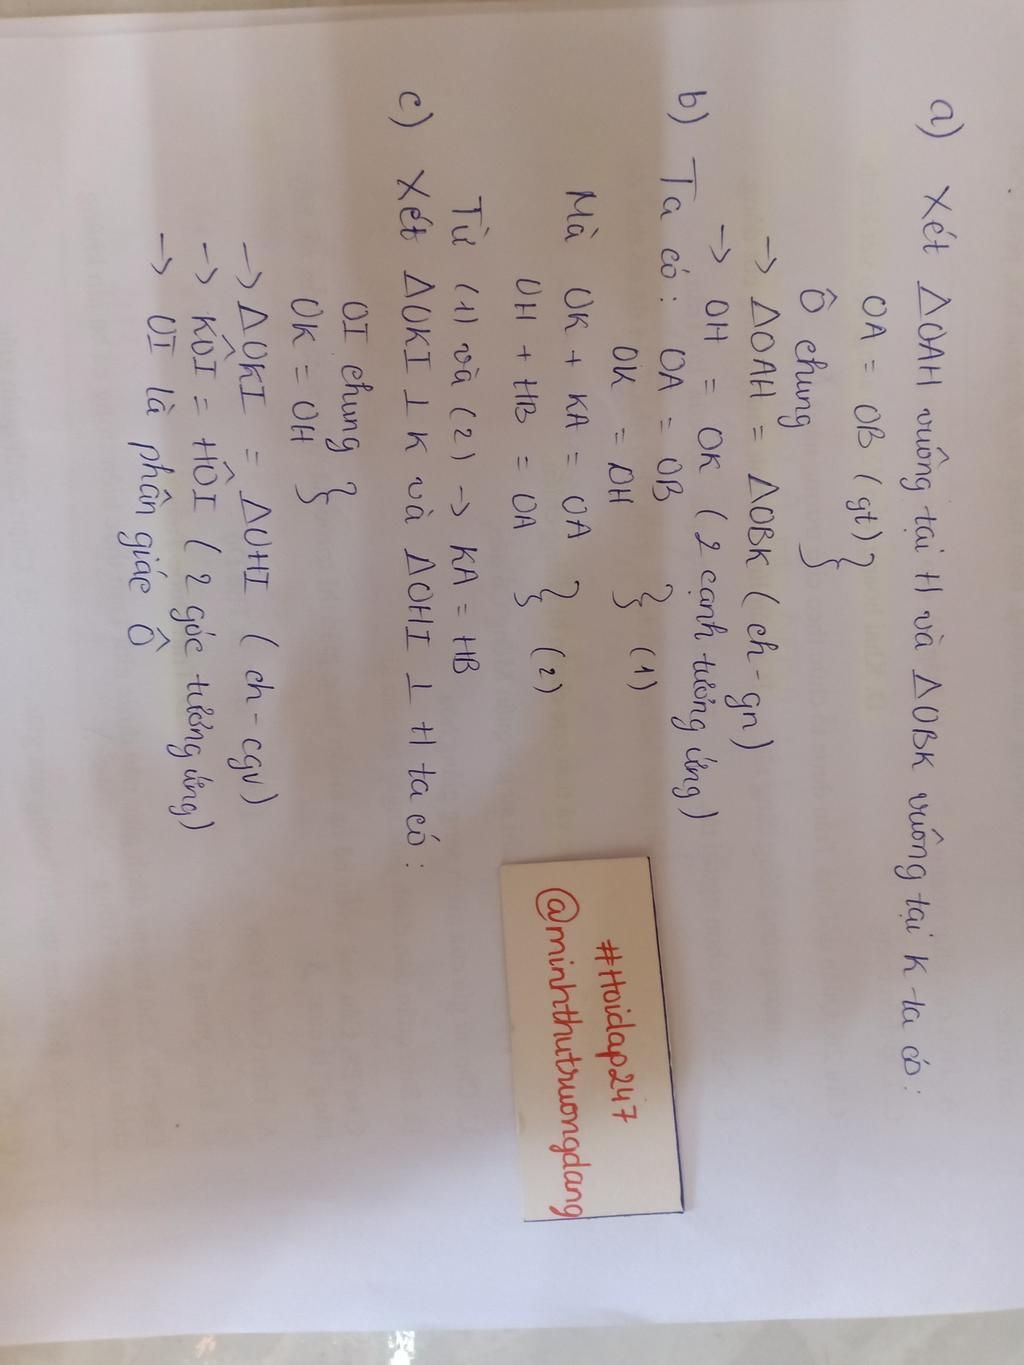 a) Xét △OAH vuông tại H và △OBK vuông tại K ta có:
OA = OB (gt) }
Ô chung }
→ △OAH = △OBK (ch-gn)
→ OH = OK (2 cạnh tương ứng)
b) Ta có: OA = OB } (1)
OK = OH
Mà OK + KA = OA } (2)
OH + HB = OA
Từ (1) và (2) → KA = HB
c) Xét △OKI ⊥ K và △OHI ⊥ H ta có:
OI chung }
OK = OH
→ △OKI = △OHI (ch-cgv)
→ KÔI = HÔI (2 góc tương ứng)
→ OI là phân giác Ô
#Hoidap247
@minhthutruongdang